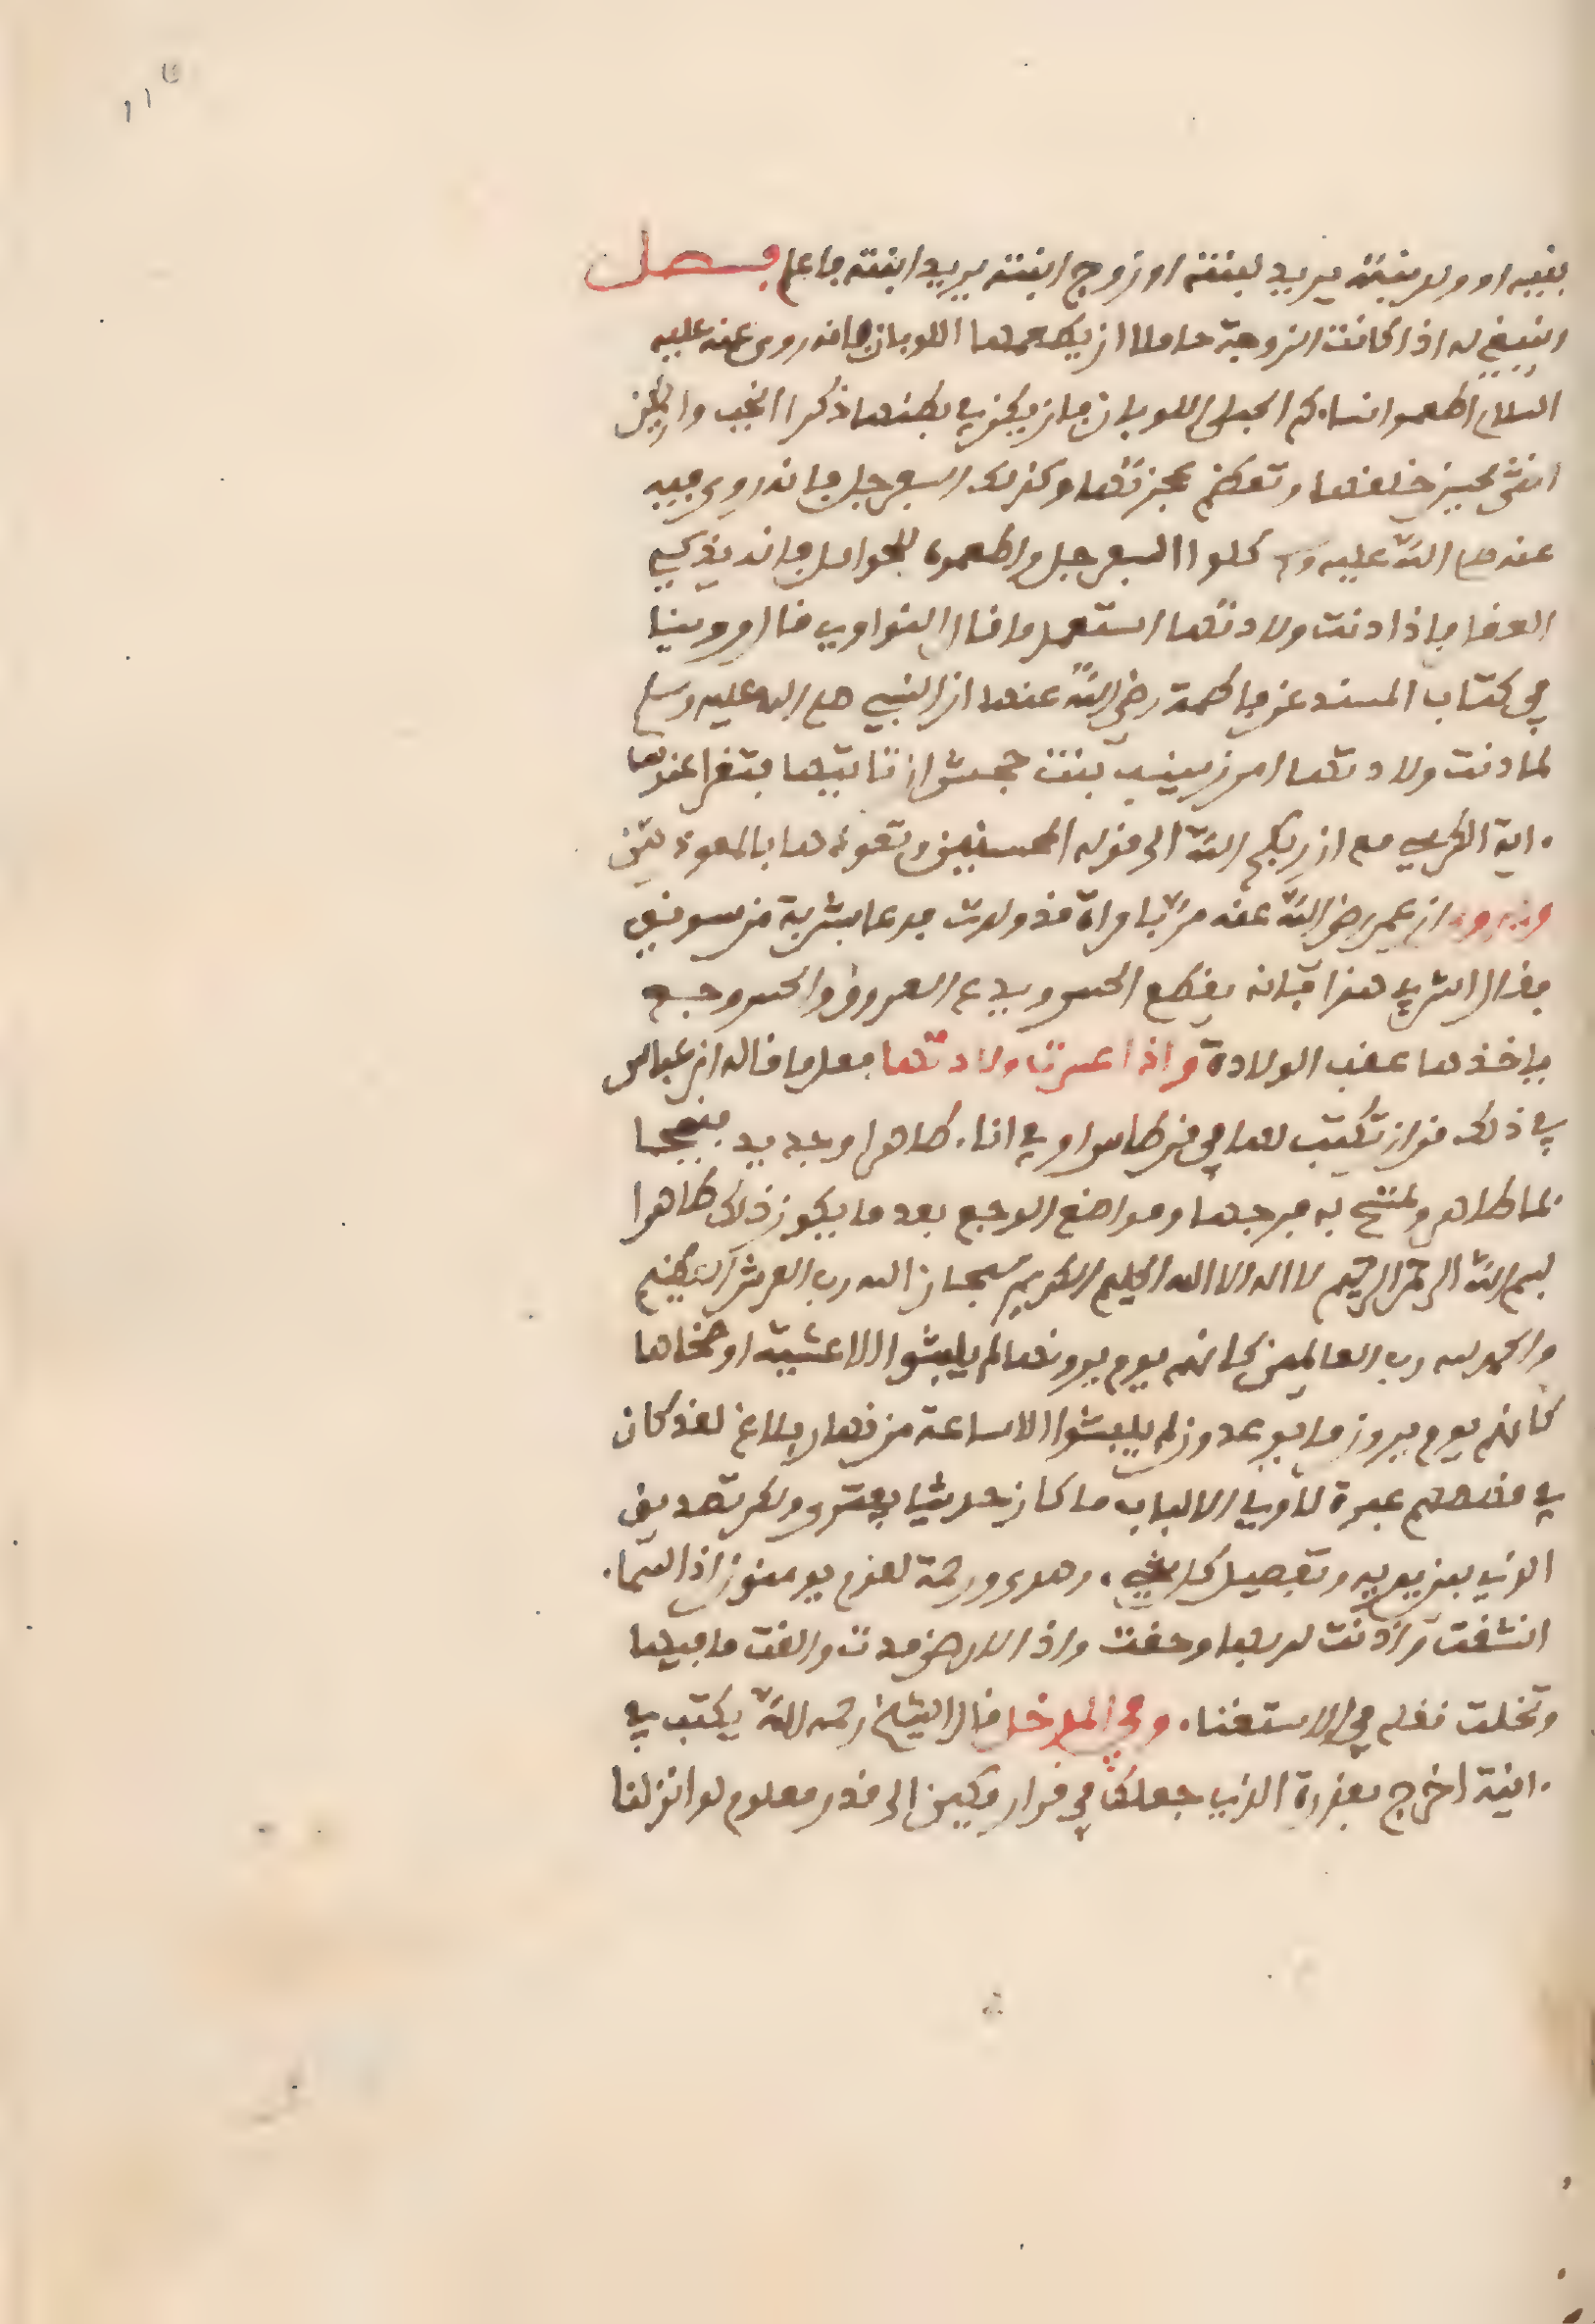 بنيه او ولد بنته يريد لبنته او زوج ابنته يريد ابنته فاعلم فصل
ينبغي له اذا كانت الزوجة حاملا ان يطعمها اللوبان فانه روي عنه عليه
السلام اطعموا نساءكم الحبلى اللوبان فان يكن في بطنها ذكرا انجب وان يكن
انثى يحسن خلقها وتعظم عجزتها وكذلك السفرجل فانه روي فيه
عنه صلى الله عليه وسلم كلوا السفرجل واطعموه للحوامل فانه يذكي
العقل فاذا دنت ولادتها استعمل ما قال النواوي قال وروينا
في كتاب المسند عن فاطمة رضي الله عنها ان النبي صلى الله عليه وسلم
لما دنت ولادتها امر زينب بنت جحش ان تاتيها فتقرا عندها
ءاية الكرسي مع ان ربكم الله الى قوله المحسنين وتعوذها بالمعوذتين
وقد روي ان عمر رضي الله عنه مر بامراة قد ولدت فدعا بشربة من سويق
فقال اشربي هذا فانه يقطع الحس ويدعم العروق والحس وجع
ياخذها عقب الولادة واذا عسرت ولادتها فعل ما قاله ابن عباس
في ذلك من ان تكتب لها في قرطاس او في اناء طاهر وجديد
بما طاهر وتمسح به فرجها ومواضع الوجع بعد ما يكون ذلك طاهرا
بسم الله الرحمن الرحيم لا اله الا الله الحليم الكريم سبحان الله رب العرش العظيم
والحمد لله رب العالمين كانهم يوم يرونها لم يلبثوا الا عشية او ضحاها
كانهم يوم يرون ما يوعدون لم يلبثوا الا ساعة من نهار بلاغ لقد كان
في قصصهم عبرة لاولي الالباب ما كان حديثا يفترى ولكن تصديق
الذي بين يديه وتفصيل كل شيء وهدى ورحمة لقوم يومنون اذا السماء
انشقت واذنت لربها وحقت واذا الارض مدت والقت ما فيها
وتخلت نقله في الاستغناء وفي المدخل قال الشيخ رحمه الله يكتب في
ءانية اخرج بقدرة الذي جعلك في قرار مكين الى قدر معلوم لو انزلنا